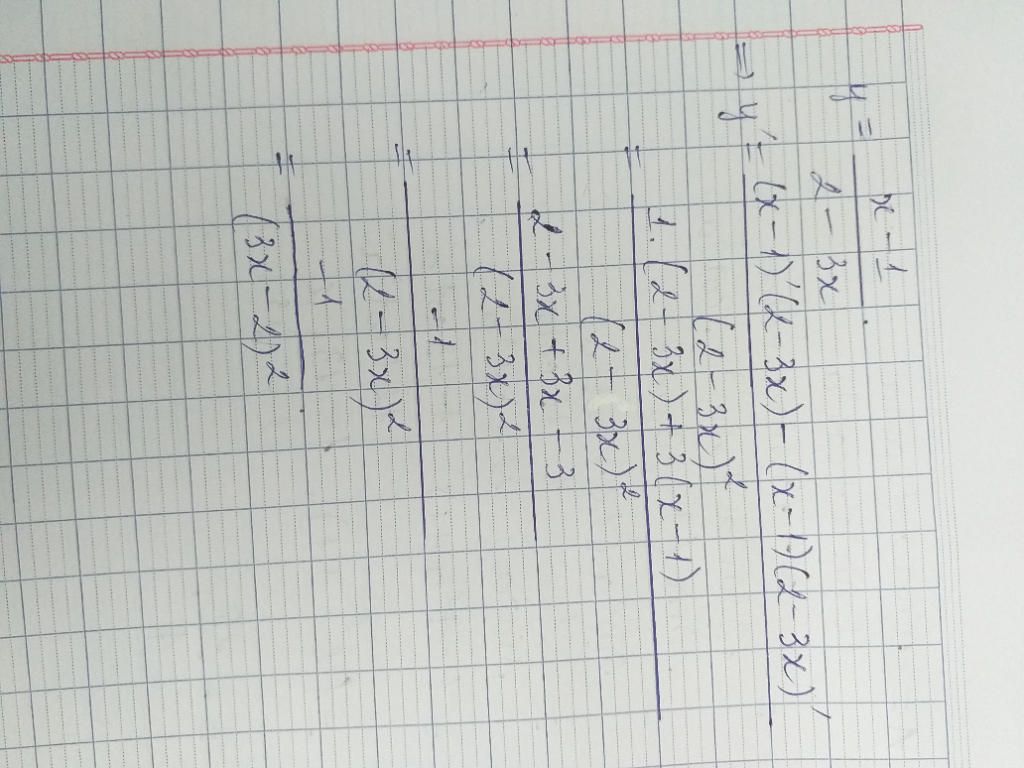 y = \frac{x - 1}{2 - 3x}
=> y' = \frac{(x - 1)'(2 - 3x) - (x - 1)(2 - 3x)'}{(2 - 3x)^2}
= \frac{1. (2 - 3x) + 3(x - 1)}{(2 - 3x)^2}
= \frac{2 - 3x + 3x - 3}{(2 - 3x)^2}
= \frac{-1}{(2 - 3x)^2}
= \frac{-1}{(3x - 2)^2}